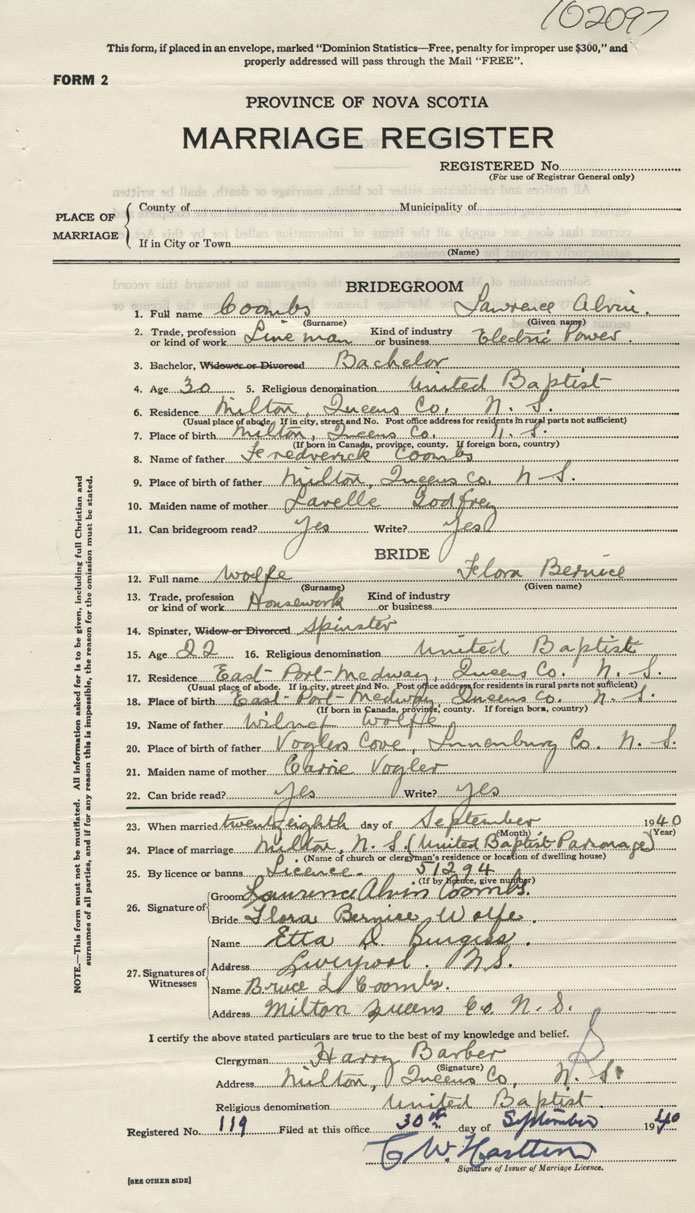 102097
This form, if placed in an envelope, marked "Dominion Statistics—Free, penalty for improper use $300," and
properly addressed will pass through the Mail "FREE".
FORM 2
PROVINCE OF NOVA SCOTIA
MARRIAGE REGISTER
REGISTERED No.
(For use of Registrar General only)
PLACE OF MARRIAGE
County of Municipality of
If in City or Town
(Name)
BRIDEGROOM
1. Full name Coombs Lawrence Alvin.
(Surname) (Given name)
2. Trade, profession or kind of work Line man Kind of industry or business Electric Power.
3. Bachelor, Widower or Divorced Bachelor
4. Age 30 5. Religious denomination United Baptist
6. Residence Milton, Queens Co. N. S.
(Usual place of abode. If in city, street and No. Post office address for residents in rural parts not sufficient)
7. Place of birth Milton, Queens Co. N. S.
(If born in Canada, province, county. If foreign born, country)
8. Name of father Fredverick Coombs
9. Place of birth of father Milton, Queens Co. N S.
10. Maiden name of mother Lavelle Godfrey
11. Can bridegroom read? Yes Write? Yes
BRIDE
12. Full name Wolfe Flora Bernice
(Surname) (Given name)
13. Trade, profession or kind of work Housework Kind of industry or business
14. Spinster, Widow or Divorced Spinster
15. Age 22 16. Religious denomination United Baptist
17. Residence East-Port-Medway, Queens Co. N. S.
(Usual place of abode. If in city, street and No. Post office address for residents in rural parts not sufficient)
18. Place of birth East-Port-Medway, Queens Co. N. S.
(If born in Canada, province, county. If foreign born, country)
19. Name of father Wolfe
20. Place of birth of father Voglers Cove, Lunenburg Co. N. S.
21. Maiden name of mother Carrie Vogler
22. Can bride read? Yes Write? Yes
23. When married twenty eighth day of September 1940
(Month) (Year)
24. Place of marriage Milton, N. S. (United Baptist Parsonage)
(Name of church or clergyman's residence or location of dwelling house)
25. By licence or banns Licence. 51294
(If by licence, give number)
26. Signature of
Groom Lawrence Alvin Coombs.
Bride Flora Bernice Wolfe.
27. Signatures of Witnesses
Name Etta D. Burgess.
Address Liverpool. N.S.
Name Bruce L. Coombs.
Address Milton Queens Co. N. S.
I certify the above stated particulars are true to the best of my knowledge and belief.
Clergyman Harry Barber
(Signature)
Address Milton, Queens Co, N. S.
Religious denomination United Baptist.
Registered No. 119 Filed at this office 30th day of September 1940
Signature of Issuer of Marriage Licence.
[SEE OTHER SIDE]
NOTE.—This form must not be mutilated. All information asked for is to be given, including full Christian and
surnames of all parties, and if for any reason this is impossible, the reason for the omission must be stated.